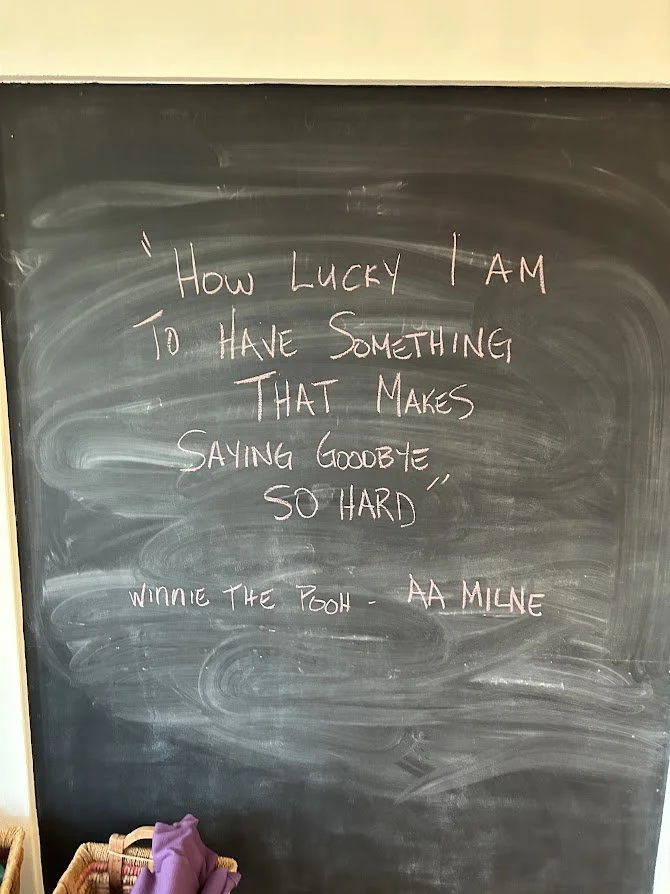 "How Lucky I AM
To HAVE SOMETHING
THAT MAKES
SAYING GOODBYE
SO HARD"
WINNIE THE POOH - AA MILNE